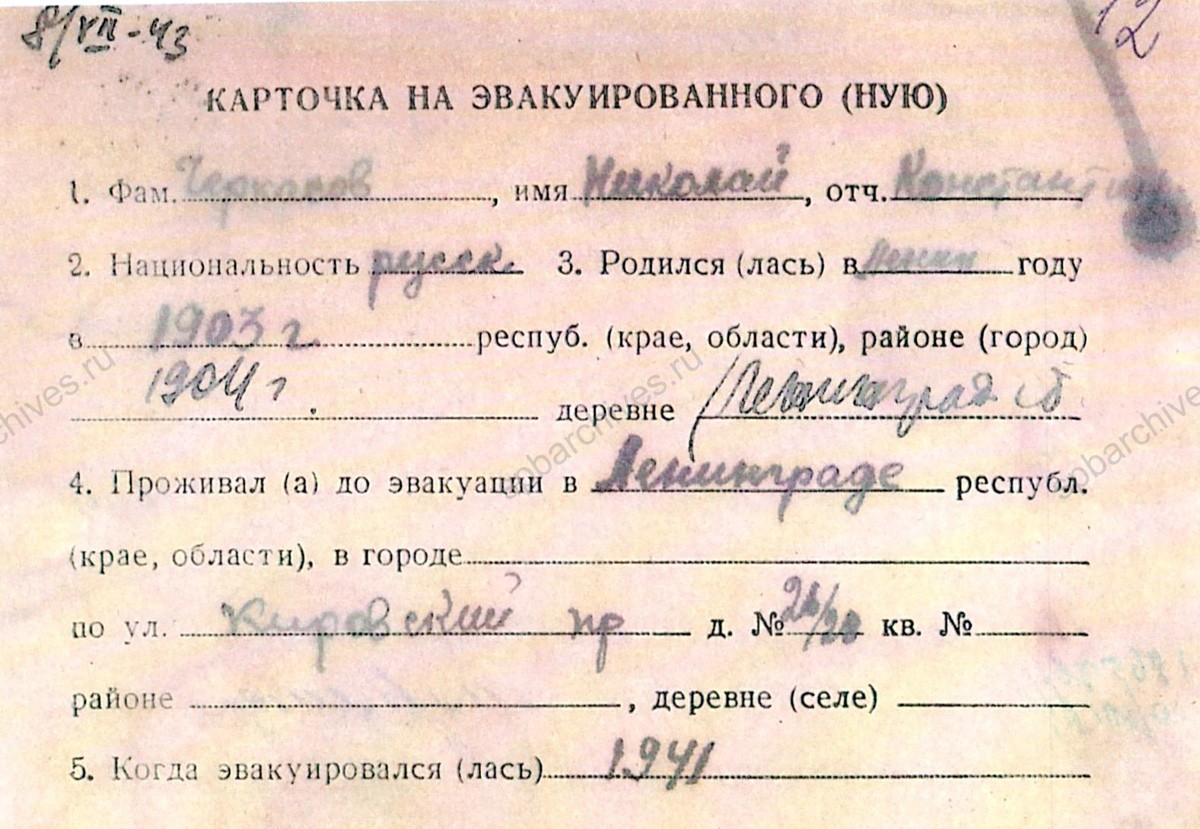 8/VII-43
12
КАРТОЧКА НА ЭВАКУИРОВАННОГО (НУЮ)
1. Фам. Черкасов, имя Николай, отч. Константин.
2. Национальность русск. 3. Родился (лась) в Ленин году
в 1903 г. респуб. (крае, области), районе (город)
1904 г. деревне
4. Проживал (а) до эвакуации в Ленинграде республ.
(крае, области), в городе
по ул. Кировский пр д. № /20 кв. №
районе , деревне (селе)
5. Когда эвакуировался (лась) 1941
spbarchives.ru